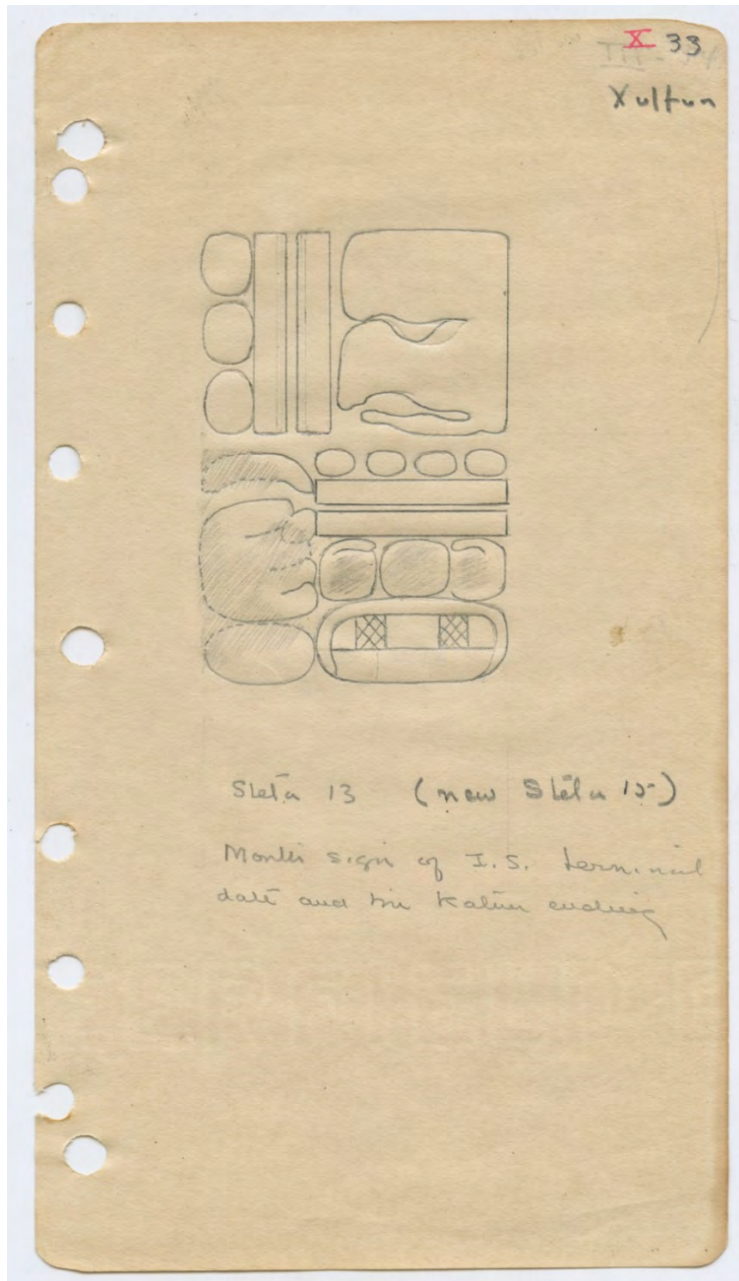 X 33
Xultun
Stela 13 (new Stela 15)
Month sign of I.S. terminal
date and the Katun ending